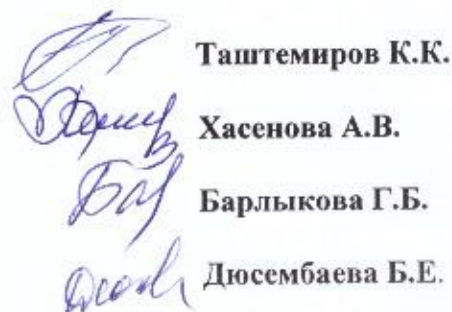 Таштемиров К.К.
Хасенова А.В.
Барлыкова Г.Б.
Дюсембаева Б.Е.